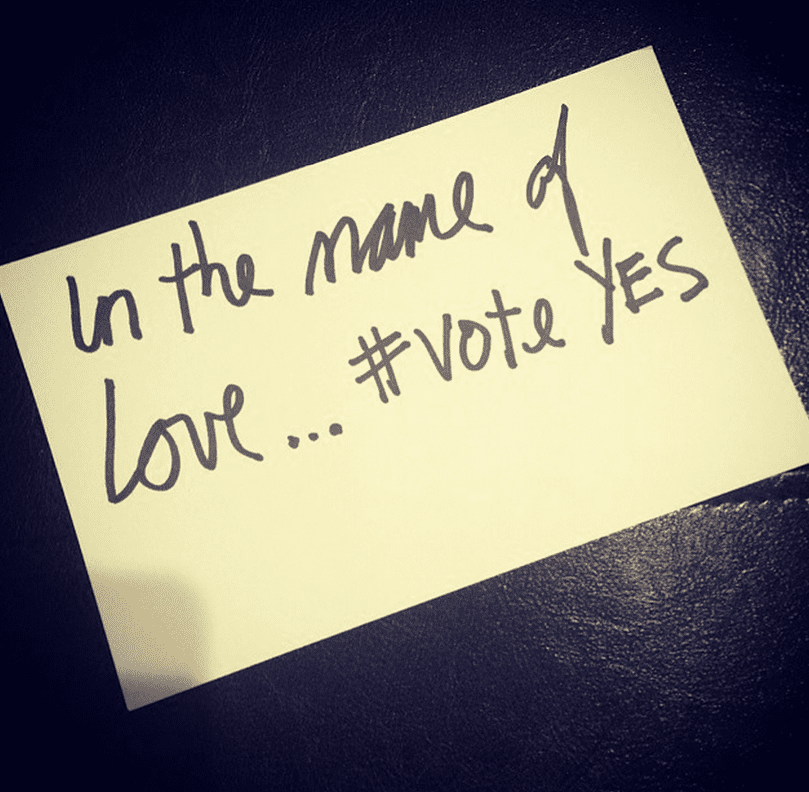 In the name of
Love... #VoteYES